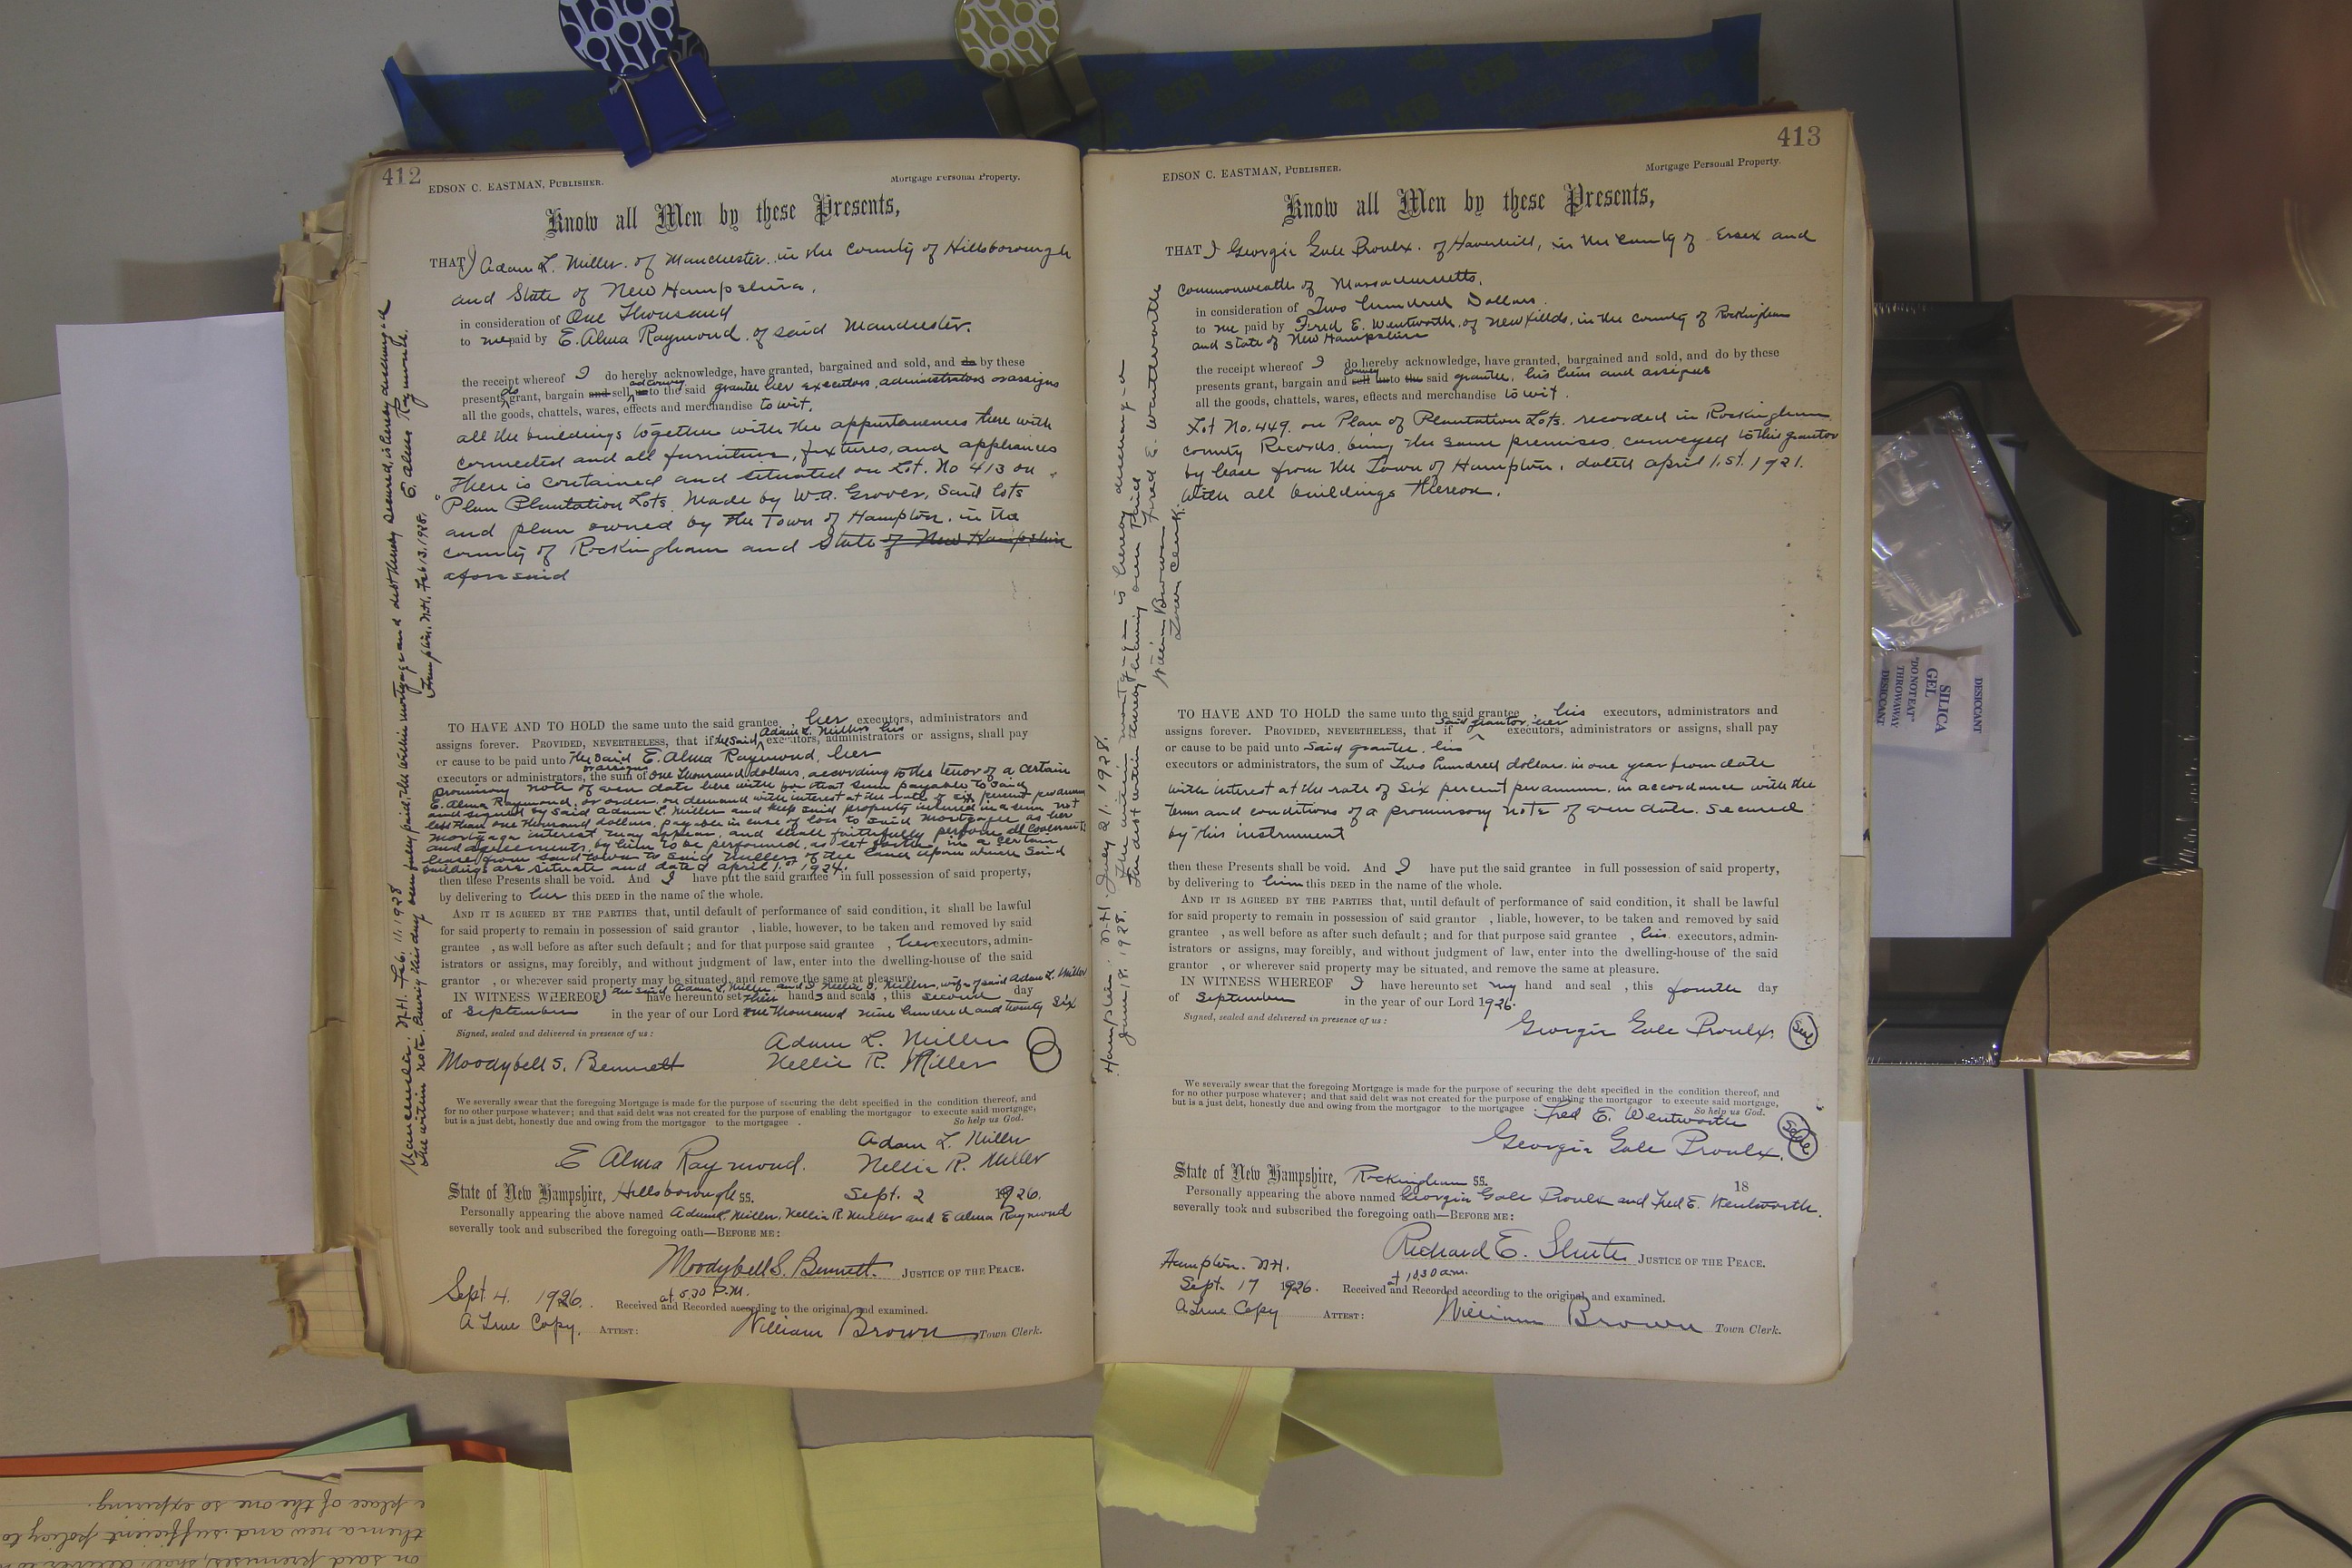 412
EDSON C. EASTMAN, PUBLISHER. Mortgage Personal Property.
Know all Men by these Presents,
THAT I Adam L. Miller. of Manchester. in the County of Hillsborough
and State of New Hampshire.
in consideration of One Thousand
to me paid by E. Alma Raymond. of said Manchester.
the receipt whereof I do hereby acknowledge, have granted, bargained and sold, and do by these
presents do grant, bargain and sell and convey unto the said grantee her executors, administrators or assigns
all the goods, chattels, wares, effects and merchandise to wit.
all the buildings together with the appurtanences there with
connected and all furniture, fixtures, and appliances
There is contained and situated on Lot. No 413 on
Plan Plantation Lots. Made by W.A. Grover, Said lots
and plan owned by the Town of Hampton. in the
county of Rockingham and State of New Hampshire
aforesaid
TO HAVE AND TO HOLD the same unto the said grantee, her executors, administrators and
assigns forever. PROVIDED, NEVERTHELESS, that if the said Adam L. Miller his executors, administrators or assigns, shall pay
or cause to be paid unto the said E. Alma Raymond, her
executors or administrators, or assigns the sum of One thousand dollars, according to the tenor of a certain
promissory note of even date here with for that sum payable to said
E. Alma Raymond, or order, on demand with interest at the rate of six percent per annum
and signed by said Adam L. Miller and keep said property insured in a sum not
less than one thousand dollars, payable in case of loss to said mortgagee as her
mortgage interest may appear, and shall faithfully perform all covenants
and agreements, by him to be performed, as set forth in a certain
lease from said town to said Miller of the land upon which said
buildings are situate and dated April 1st 1924.
then these Presents shall be void. And I have put the said grantee in full possession of said property,
by delivering to her this DEED in the name of the whole.
AND IT IS AGREED BY THE PARTIES that, until default of performance of said condition, it shall be lawful
for said property to remain in possession of said grantor , liable, however, to be taken and removed by said
grantee , as well before as after such default; and for that purpose said grantee , her executors, admin-
istrators or assigns, may forcibly, and without judgment of law, enter into the dwelling-house of the said
grantor , or wherever said property may be situated, and remove the same at pleasure.
IN WITNESS WHEREOF I the said Adam L. Miller and I Nellie R. Miller, wife of said Adam L. Miller have hereunto set their hands and seals, this second day
of September in the year of our Lord one thousand nine hundred and twenty six
Signed, sealed and delivered in presence of us:
Adam L. Miller
Moodybell S. Bennett Nellie R. Miller
We severally swear that the foregoing Mortgage is made for the purpose of securing the debt specified in the condition thereof, and
for no other purpose whatever; and that said debt was not created for the purpose of enabling the mortgagor to execute said mortgage,
but is a just debt, honestly due and owing from the mortgagor to the mortgagee . So help us God.
Adam L. Miller
E Alma Raymond. Nellie R. Miller
State of New Hampshire, Hillsborough ss. Sept. 2 1926.
Personally appearing the above named Adam L. Miller, Nellie R. Miller and E Alma Raymond
severally took and subscribed the foregoing oath—BEFORE ME:
Moodybell S. Bennett. JUSTICE OF THE PEACE.
Sept. 4. 1926. at 5.30 P.M. Received and Recorded according to the original, and examined.
A True Copy. ATTEST: William Brown Town Clerk.
Manchester. N.H. Feb. 11. 1928
The within note having this day been fully paid, the within mortgage and debt thereby secured, is hereby discharged
Hampton, N.H. Feb 13, 1928. E. Alma Raymond.
413
EDSON C. EASTMAN, PUBLISHER. Mortgage Personal Property.
Know all Men by these Presents,
THAT I Georgia Gale Proulx. of Haverhill, in the County of Essex and
Commonwealth of Massachusetts.
in consideration of Two hundred Dollars.
to me paid by Fred E. Wentworth. of Newfields. in the County of Rockingham
and State of New Hampshire
the receipt whereof I do hereby acknowledge, have granted, bargained and sold, and do by these
presents grant, bargain and sell convey unto the said grantee, his heirs and assigns
all the goods, chattels, wares, effects and merchandise to wit.
Lot No. 449. on Plan of Plantation Lots. recorded in Rockingham
County Records. being the same premises. conveyed to this grantor
by lease from the Town of Hampton. dated April 1.st. 1921.
With all buildings thereon.
TO HAVE AND TO HOLD the same unto the said grantee , his executors, administrators and
assigns forever. PROVIDED, NEVERTHELESS, that if said grantor, her executors, administrators or assigns, shall pay
or cause to be paid unto said grantee. his
executors or administrators, the sum of Two hundred dollars. in one year from date
with interest at the rate of Six percent per annum. in accordance with the
terms and conditions of a promissory note of even date. secured
by this instrument
then these Presents shall be void. And I have put the said grantee in full possession of said property,
by delivering to him this DEED in the name of the whole.
AND IT IS AGREED BY THE PARTIES that, until default of performance of said condition, it shall be lawful
for said property to remain in possession of said grantor , liable, however, to be taken and removed by said
grantee , as well before as after such default; and for that purpose said grantee , his executors, admin-
istrators or assigns, may forcibly, and without judgment of law, enter into the dwelling-house of the said
grantor , or wherever said property may be situated, and remove the same at pleasure.
IN WITNESS WHEREOF I have hereunto set my hand and seal , this fourth day
of September in the year of our Lord 1926.
Signed, sealed and delivered in presence of us:
Georgia Gale Proulx. Seal
We severally swear that the foregoing Mortgage is made for the purpose of securing the debt specified in the condition thereof, and
for no other purpose whatever; and that said debt was not created for the purpose of enabling the mortgagor to execute said mortgage,
but is a just debt, honestly due and owing from the mortgagor to the mortgagee . So help us God.
Fred E. Wentworth
Georgia Gale Proulx. Seal
State of New Hampshire, Rockingham ss. 18
Personally appearing the above named Georgia Gale Proulx and Fred E. Wentworth.
severally took and subscribed the foregoing oath—BEFORE ME:
Richard E. Shute JUSTICE OF THE PEACE.
Hampton. N.H.
Sept. 17 1926. at 10.30 a.m. Received and Recorded according to the original, and examined.
A True Copy ATTEST: William Brown Town Clerk.
Hampton. N.H. July 21. 1928.
June, 18. 1928. The within mortgage is hereby discharged
the debt within thereby having been paid
Fred E. Wentworth
William Brown
Town Clerk.
SILICA
GEL
"DO NOT EAT"
THROWAWAY
DESICCANT
DESICCANT
e place of the one so expiring.
them a new and sufficient policy to
on said premises, shall deliver to